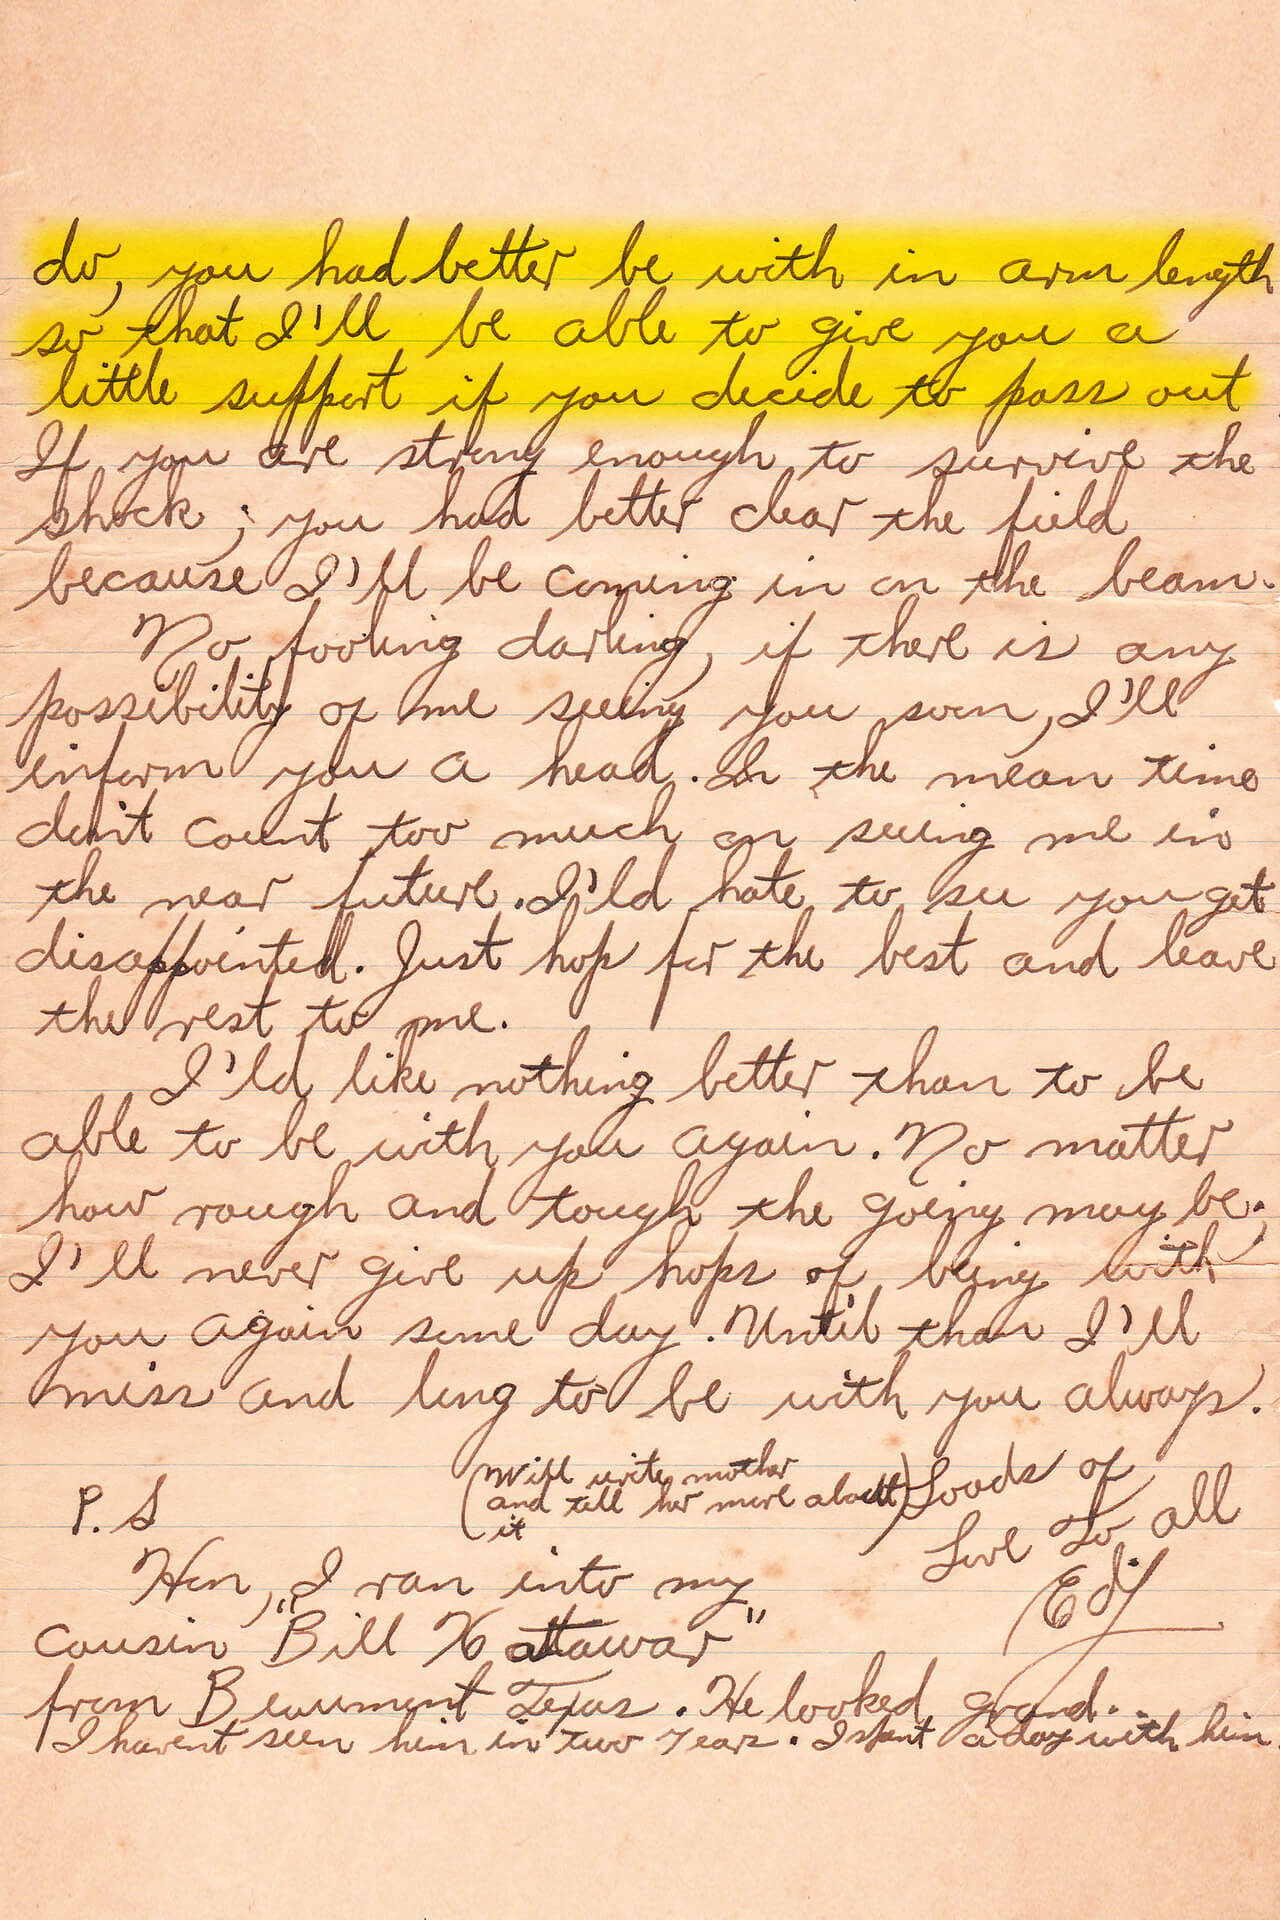 do, you had better be with in arm length
so that I'll be able to give you a
little support if you decide to pass out.
If you are strong enough to survive the
shock; you had better clear the field
because I'll be coming in on the beam.
No fooling darling, if there is any
possibility of me seeing you soon, I'll
inform you a head. In the mean time
don't count too much on seeing me in
the near future. I'ld hate to see you get
disappointed. Just hop for the best and leave
the rest to me.
I'ld like nothing better than to be
able to be with you again. No matter
how rough and tough the going may be;
I'll never give up hops of being with
you again some day. Until than I'll
miss and long to be with you always.
Loads of
Love To all
Edy
P.S (Will write mother
and tell her more about
it)
Hon, I ran into my
cousin "Bill Kattawar"
from Beaumont Texas. He looked grand.
I havent seen him in two years. I spent a day with him.